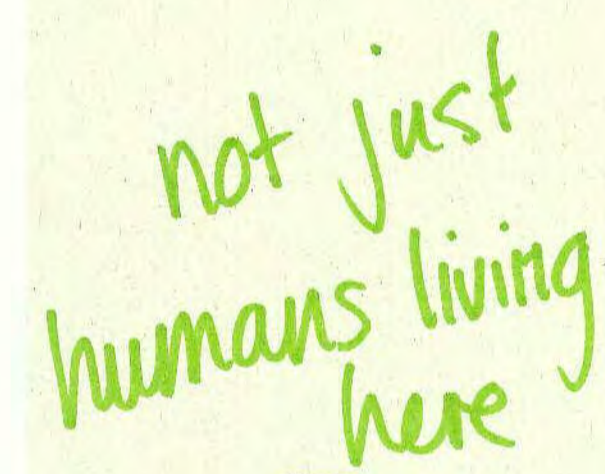 not just
humans living
here